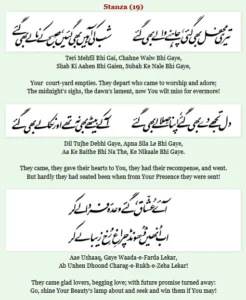 Stanza (19)
تیری محفل بھی گئی، چاہنے والے بھی گئے
شب کی آہیں بھی گئیں، صبح کے نالے بھی گئے
Teri Mehfil Bhi Gai, Chahne Walw Bhi Gaye,
Shab Ki Aahen Bhi Gaien, Subah Ke Nale Bhi Gaye,
Your court-yard empties. They depart who came to worship and adore;
The midnight's sighs, the dawn's lament, now You will miss for evermore!
دل تجھے دے بھی گئے، اپنا صلا لے بھی گئے
آ کے بیٹھے بھی نہ تھے اور نکالے بھی گئے
Dil Tujhe Debhi Gaye, Apna Sila Le Bhi Gaye,
Aa Ke Baithe Bhi Na The, Ke Nikaale Bhi Gaye.
They came, they gave their hearts to You, they had their recompense, and went.
But hardly they had seated been when from Your Presence they were sent!
آئے عشّاق، گئے وعدۂ فردا لے کر
اب اُنھیں ڈھونڈ چراغِ رخِ زیبا لے کر
Aae Ushaaq, Gaye Waada-e-Farda Lekar,
Ab Unhen Dhoond Charag-e-Rukh-e-Zeba Lekar!
They came glad lovers, begging love; with future promise turned away:
Go, shine Your Beauty's lamp about and seek and win them if You may!